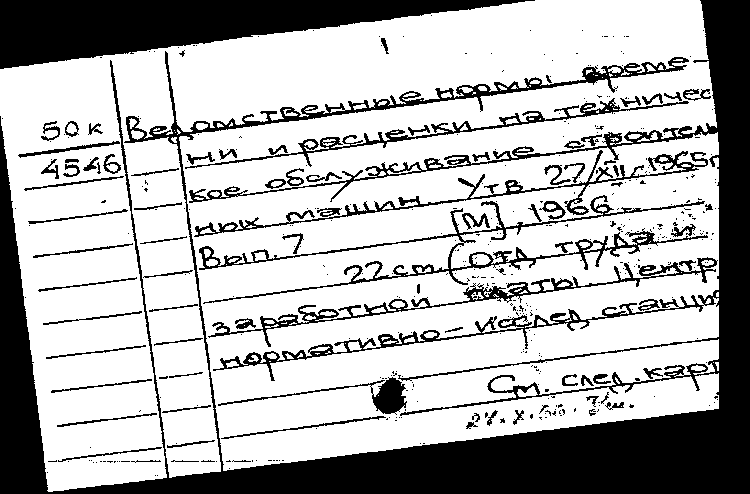 50к Ведомственные нормы време-
4546 ни и расценки на техничес
кое обслуживание строитель
ных машин. Утв. 27/XII-1965г
Вып. 7 [М], 1966
22 ст. (Отд. труда и
заработной платы. Центр.
нормативно-исслед. станция
См. след. карт